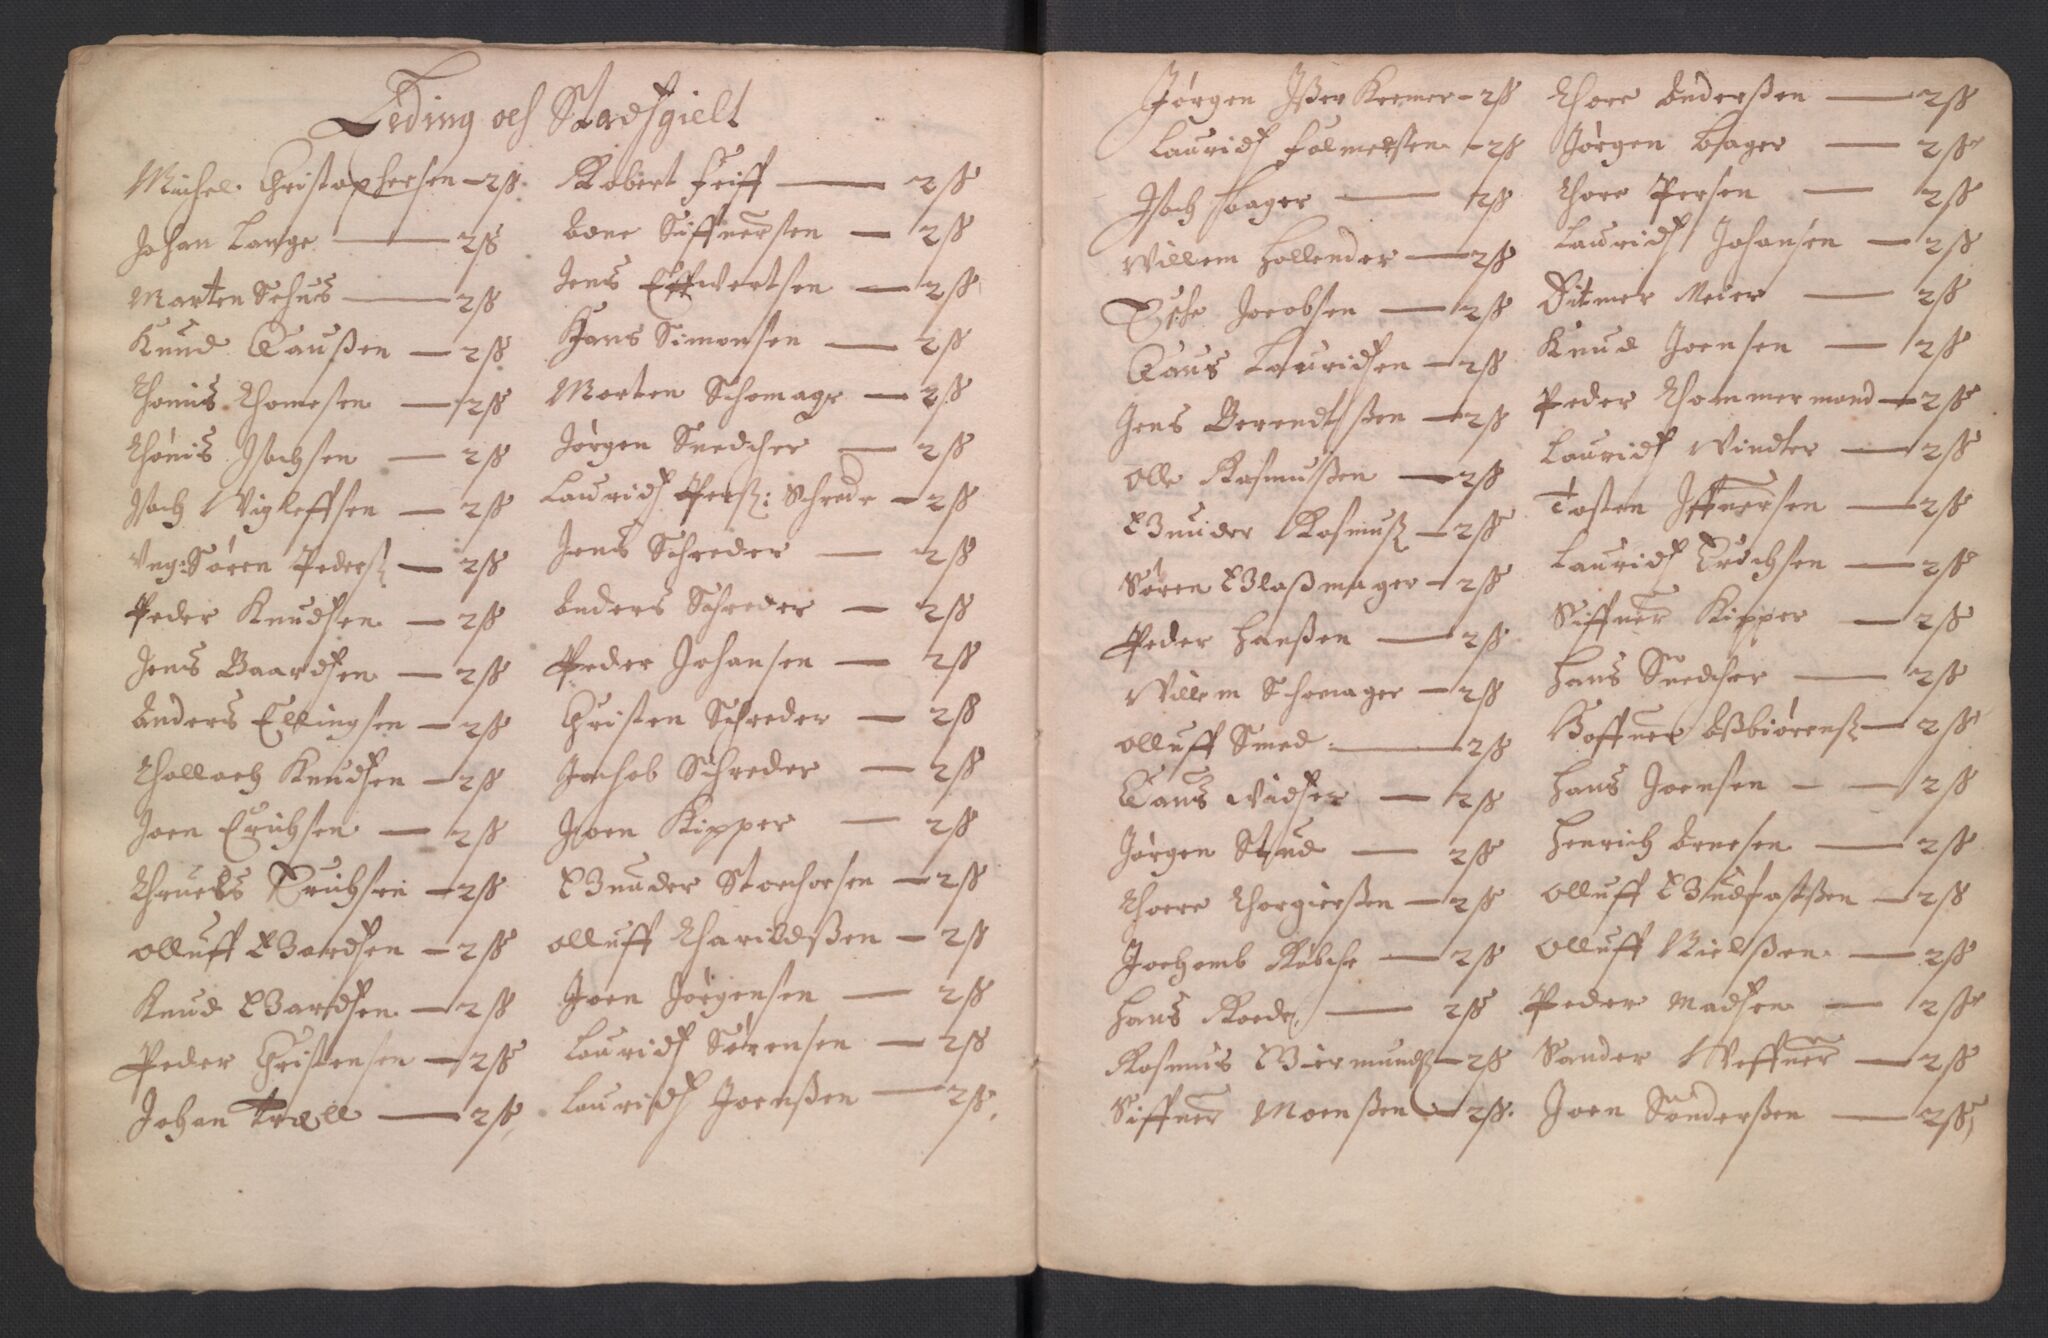 Leding och Stadsgielt
Michel Christophersen - 2 ß
Johan Lange - 2 ß
Marten Schus - 2 ß
Knud Claußen - 2 ß
Thomis Thomesen - 2 ß
Thönis Isachsen - 2 ß
Isach Wigleffsen - 2 ß
Vng: Sören Peders - 2 ß
Peder Knudsen - 2 ß
Jens Baardsen - 2 ß
Anders Ellingsen - 2 ß
Thollach Knudsen - 2 ß
Joen Erichsen - 2 ß
Thruels Erichsen - 2 ß
Olluff Bardsen - 2 ß
Knud Bardsen - 2 ß
Peder Christensen - 2 ß
Johan Træll - 2 ß
Robert Feiff - 2 ß
Arne Siffuersen - 2 ß
Jens Effwertsen - 2 ß
Hans Simonsen - 2 ß
Morten Schomager - 2 ß
Jørgen Snedcher - 2 ß
Laurids Pers: Schreder - 2 ß
Jens Schreder - 2 ß
Anders Schreder - 2 ß
Peder Johansen - 2 ß
Christen Schreder - 2 ß
Jachob Schreder - 2 ß
Joen Kipper - 2 ß
Gunder Storchorsen - 2 ß
Olluff Tharildßen - 2 ß
Joen Jørgensen - 2 ß
Laurids Sörensen - 2 ß
Laurids Joenßen - 2 ß
Jørgen Ißer Kremer - 2 ß
Laurids Folmersen - 2 ß
Isach Baager - 2 ß
Willem Hollender - 2 ß
Jacobsen - 2 ß
Claus Lauridsen - 2 ß
Jens Berendtßen - 2 ß
Olle Rasmußen - 2 ß
Gunder Rasmus - 2 ß
Sören Glaßmager - 2 ß
Peder Hanßen - 2 ß
Willem Schomager - 2 ß
Olluff Smed - 2 ß
Claus Widser - 2 ß
Jørgen Stud - 2 ß
Thore Thorgierßen - 2 ß
Jochomb Röbche - 2 ß
Hans Roed - 2 ß
Rasmus Giermunds - 2 ß
Siffuer Moenßen - 2 ß
Thore Anderßen - 2 ß
Jørgen Bager - 2 ß
Thore Persen - 2 ß
Laurids Johansen - 2 ß
Ditmer Meier - 2 ß
Knud Joensen - 2 ß
Peder Thømmermand - 2 ß
Laurids Windter - 2 ß
Tosten Iffuersen - 2 ß
Laurids Erichsen - 2 ß
Siffuer Kipper - 2 ß
Hans Snedcher - 2 ß
Goffuer Aßbiörens - 2 ß
Hans Joensen - 2 ß
Henrich Arnesen - 2 ß
Olluff Gudfastßen - 2 ß
Olluff Nielßen - 2 ß
Peder Madsen - 2 ß
Sander Weffuer - 2 ß
Joen Sönderßen - 2 ß